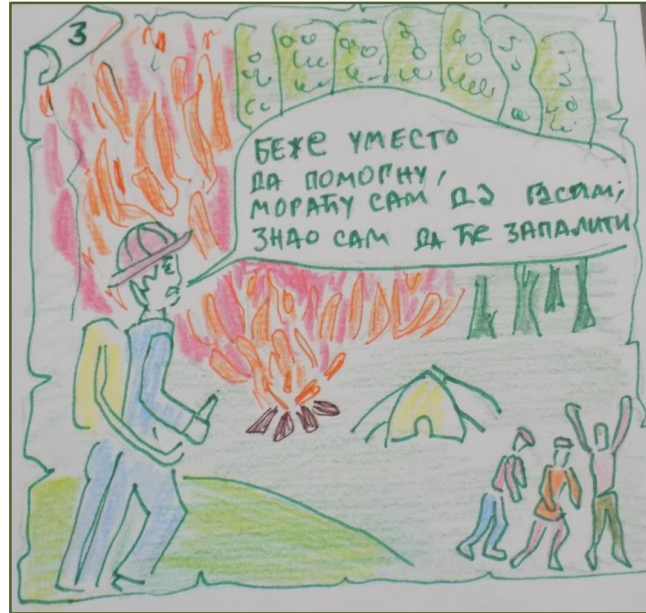 3
БЕЖЕ УМЕСТО
ДА ПОМОГНУ,
МОРАЋУ САМ ДА ГАСИМ;
ЗНАО САМ ДА ЋЕ ЗАПАЛИТИ